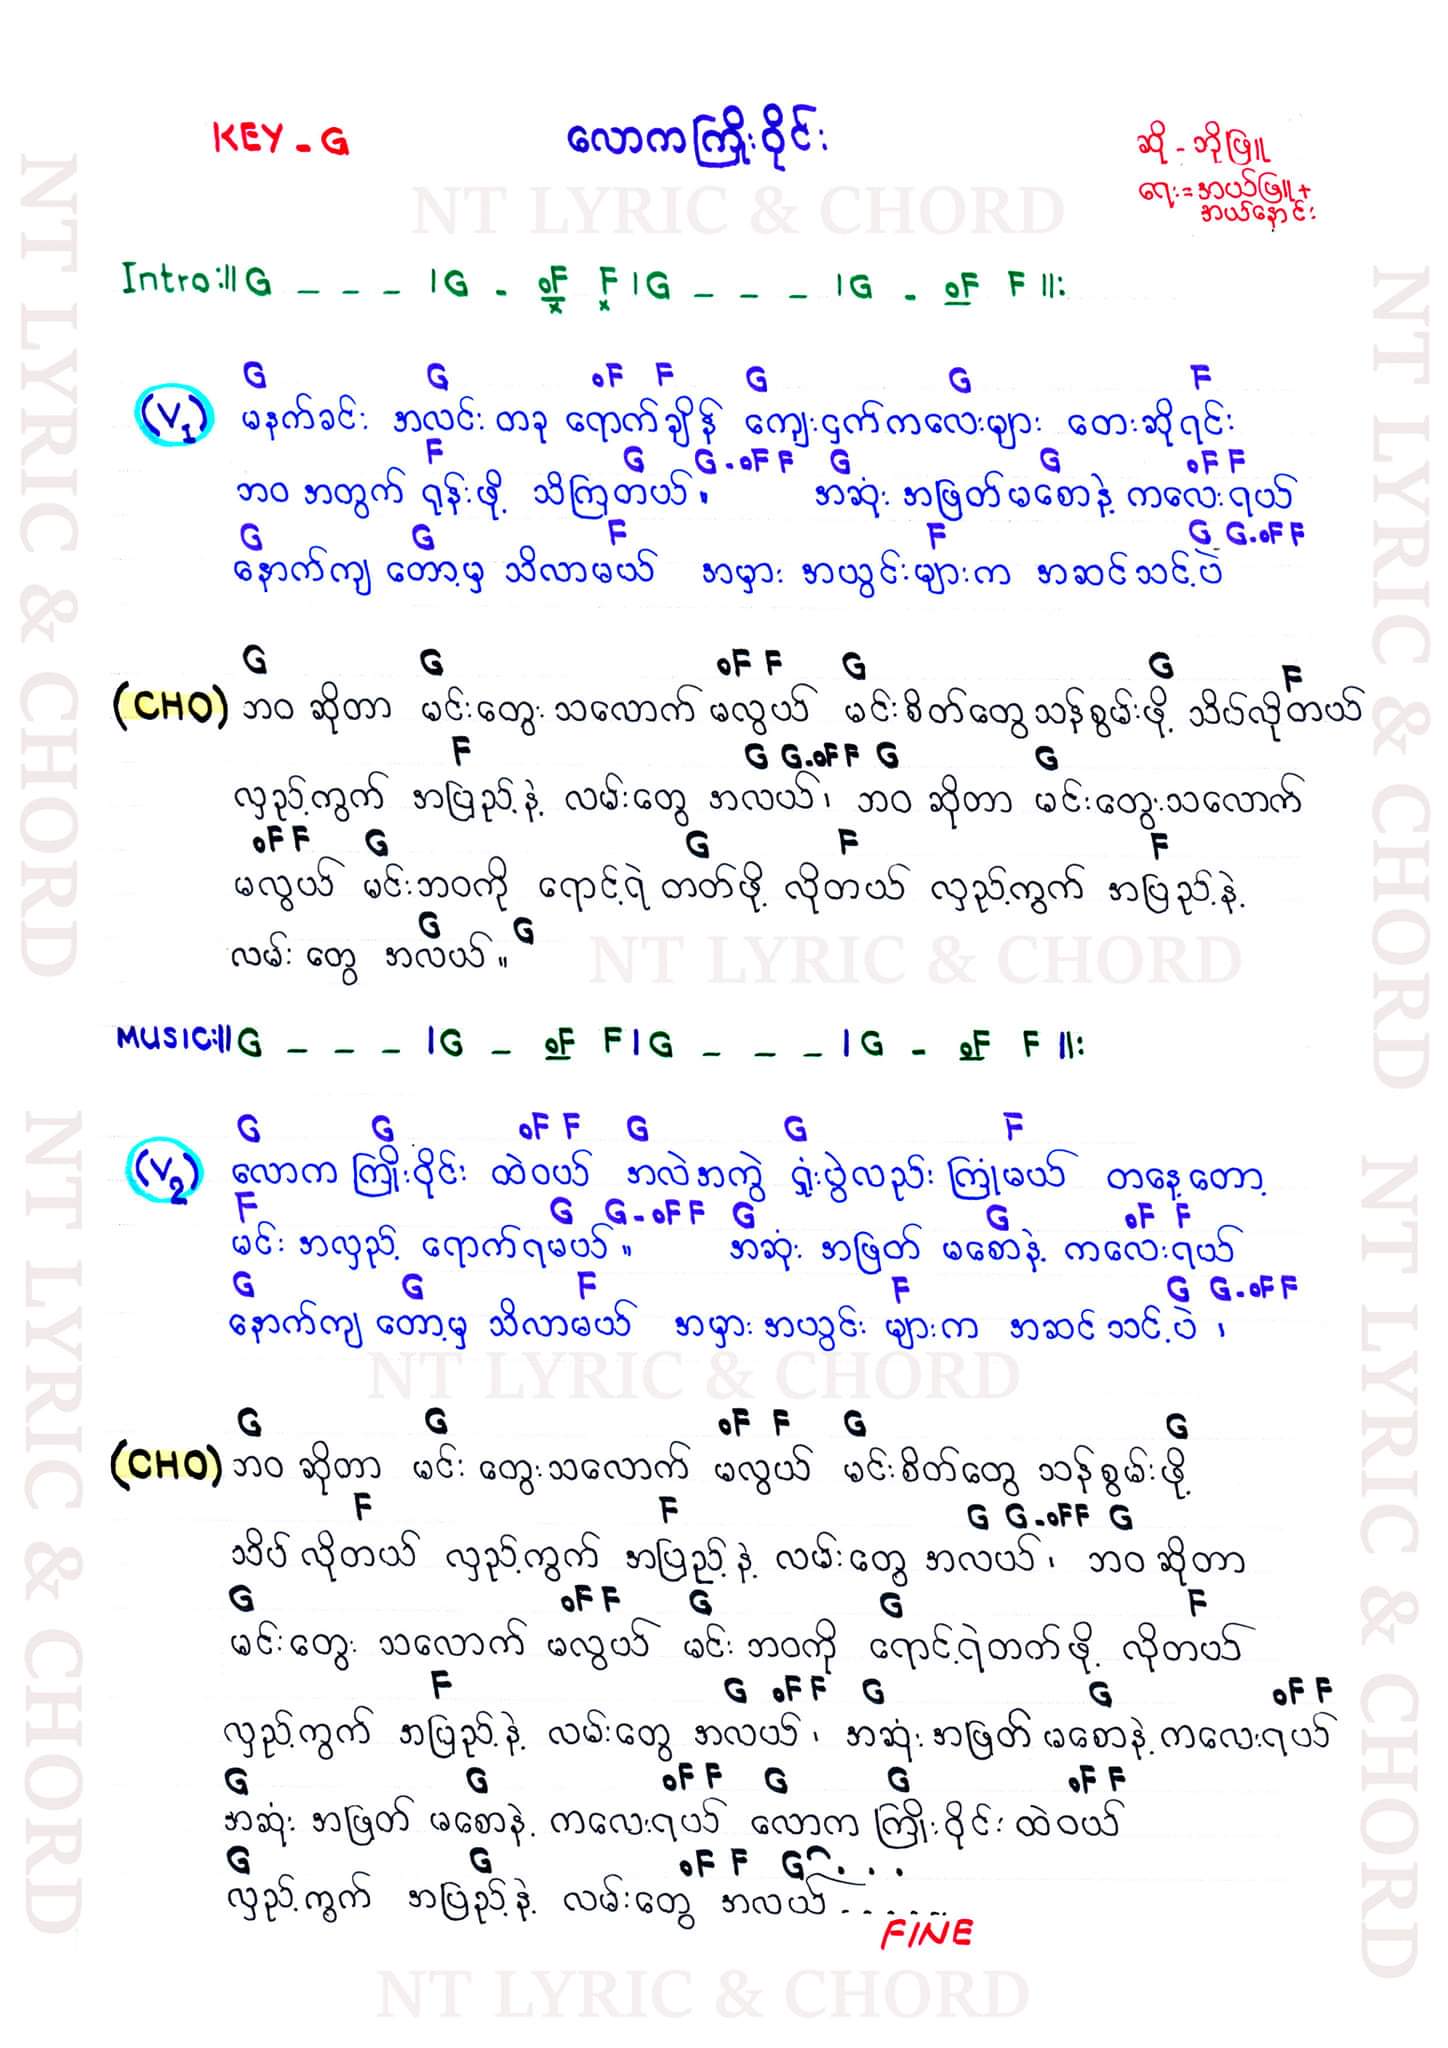 KEY - G
လောကကြိုးဝိုင်း
ဆို - ဘိုဖြူ
ရေး = အယ်ဖြူ +
အယ်နောင်း
NT LYRIC & CHORD
Intro:|| G _ _ _ | G - oF F | G _ _ _ | G - oF F ||:
G G oF F G G F
(V1) မနက်ခင်း အလင်း တခု ရောက်ချိန် ကျေးငှက်ကလေးများ တေးဆိုရင်း
F G G - oF F G G oF F
ဘဝ အတွက် ရုန်းဖို့ သိကြတယ်။ အဆုံး အဖြတ် မစောနဲ့ ကလေးရယ်
G G F F G G - oF F
နောက်ကျ တော့မှ သိလာမယ် အမှား အယွင်းများက အဆင်သင့်ပဲ
G G oF F G G F
(CHO) ဘဝ ဆိုတာ မင်းတွေးသလောက် မလွယ် မင်းစိတ်တွေ သန်စွမ်းဖို့ သိပ်လိုတယ်
F G G - oF F G G
လှည့်ကွက် အပြည့်နဲ့ လမ်းတွေ အလယ်၊ ဘဝ ဆိုတာ မင်းတွေးသလောက်
oF F G G F F
မလွယ် မင်းဘဝကို ရောင့်ရဲ တတ်ဖို့ လိုတယ် လှည့်ကွက် အပြည့်နဲ့
G G
လမ်း တွေ အလယ်။
NT LYRIC & CHORD
MUSIC:|| G _ _ _ | G _ oF F | G _ _ _ | G - oF F ||:
G G oF F G G F
(V2) လောက ကြိုးဝိုင်း ထဲဝယ် အလဲအကွဲ ရှုံးပွဲလည်း ကြုံမယ် တနေ့တော့
F G G - oF F G G oF F
မင်း အလှည့် ရောက်ရမယ်။ အဆုံး အဖြတ် မစောနဲ့ ကလေးရယ်
G G F F G G - oF F
နောက်ကျ တော့မှ သိလာမယ် အမှား အယွင်း များက အဆင်သင့်ပဲ ၊
NT LYRIC & CHORD
G G oF F G G
(CHO) ဘဝ ဆိုတာ မင်း တွေးသလောက် မလွယ် မင်းစိတ်တွေ သန်စွမ်းဖို့
F F G G - oF F G
သိပ် လိုတယ် လှည့်ကွက် အပြည့်နဲ့ လမ်းတွေ အလယ်၊ ဘဝ ဆိုတာ
G oF F G G F
မင်းတွေး သလောက် မလွယ် မင်း ဘဝကို ရောင့်ရဲတက်ဖို့ လိုတယ်
F G oF F G G oF F
လှည့်ကွက် အပြည့်နဲ့ လမ်းတွေ အလယ်၊ အဆုံး အဖြတ် မစောနဲ့ ကလေးရယ်
G G oF F G G oF F
အဆုံး အဖြတ် မစောနဲ့ ကလေးရယ် လောက ကြိုးဝိုင်း ထဲဝယ်
G G oF F G . . .
လှည့်ကွက် အပြည့်နဲ့ လမ်းတွေ အလယ် - - - - - -
FINE
NT LYRIC & CHORD
NT LYRIC & CHORD
NT LYRIC & CHORD
NT LYRIC & CHORD
NT LYRIC & CHORD